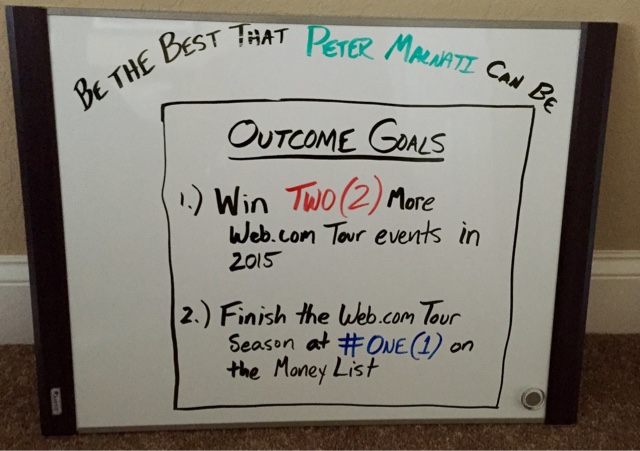 BE THE BEST THAT PETER MALNATI CAN BE
OUTCOME GOALS
1.) Win TWO(2) More
Web.com Tour events in
2015
2.) Finish the Web.com Tour
Season at #ONE(1) on
the Money List